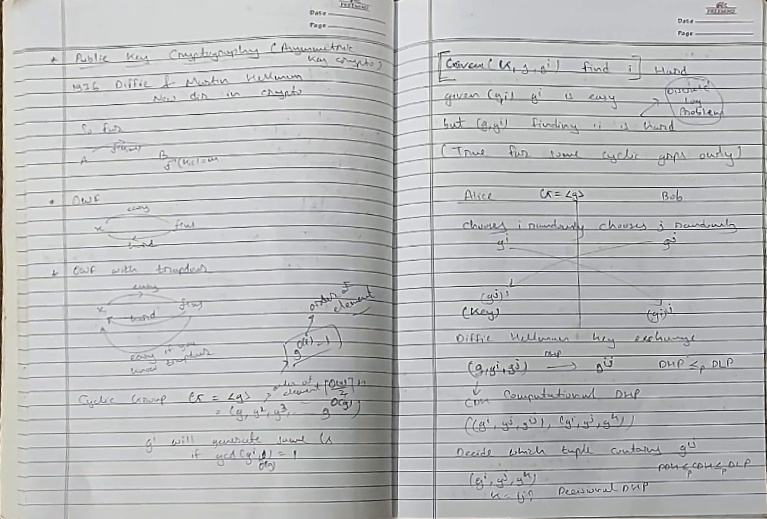 Date
Page
* Public Key Cryptography (Asymmetric
Key crypto)
1976 Diffie & Martin Hellman
New dir in crypto
So far
A
B
* OWF
easy
x f(x)
hard
* OWF with trapdoor
easy
x hard f(x)
easy if you
know trapdoor
order of
element
order of
element
Cyclic Group G = <g>
= (g, g², g³, g^O(g))
g^i will generate same G
if gcd(
= 1
Date
Page
[Given (G, g, g^i) find i] Hard
given (g,i) g^i is easy
Discrete
Log
Problem
but (g,g^i) finding i is hard
(True for some cyclic grps only)
Alice G = <g> Bob
chooses i randomly chooses j randomly
g^i g^j
(g^j)^i
(Key) (g^i)^j
Diffie Hellman Key exchange
(g, g^i, g^j) DHP → g^ij DHP ≤p DLP
CDH Computational DHP
((g^i, g^j, g^ij), (g^i, g^j, g^k))
Decide which tuple contains g^ij
DDH ≤p CDH ≤p DLP
(g^i, g^j, g^k)
k = ij? Decisional DHP